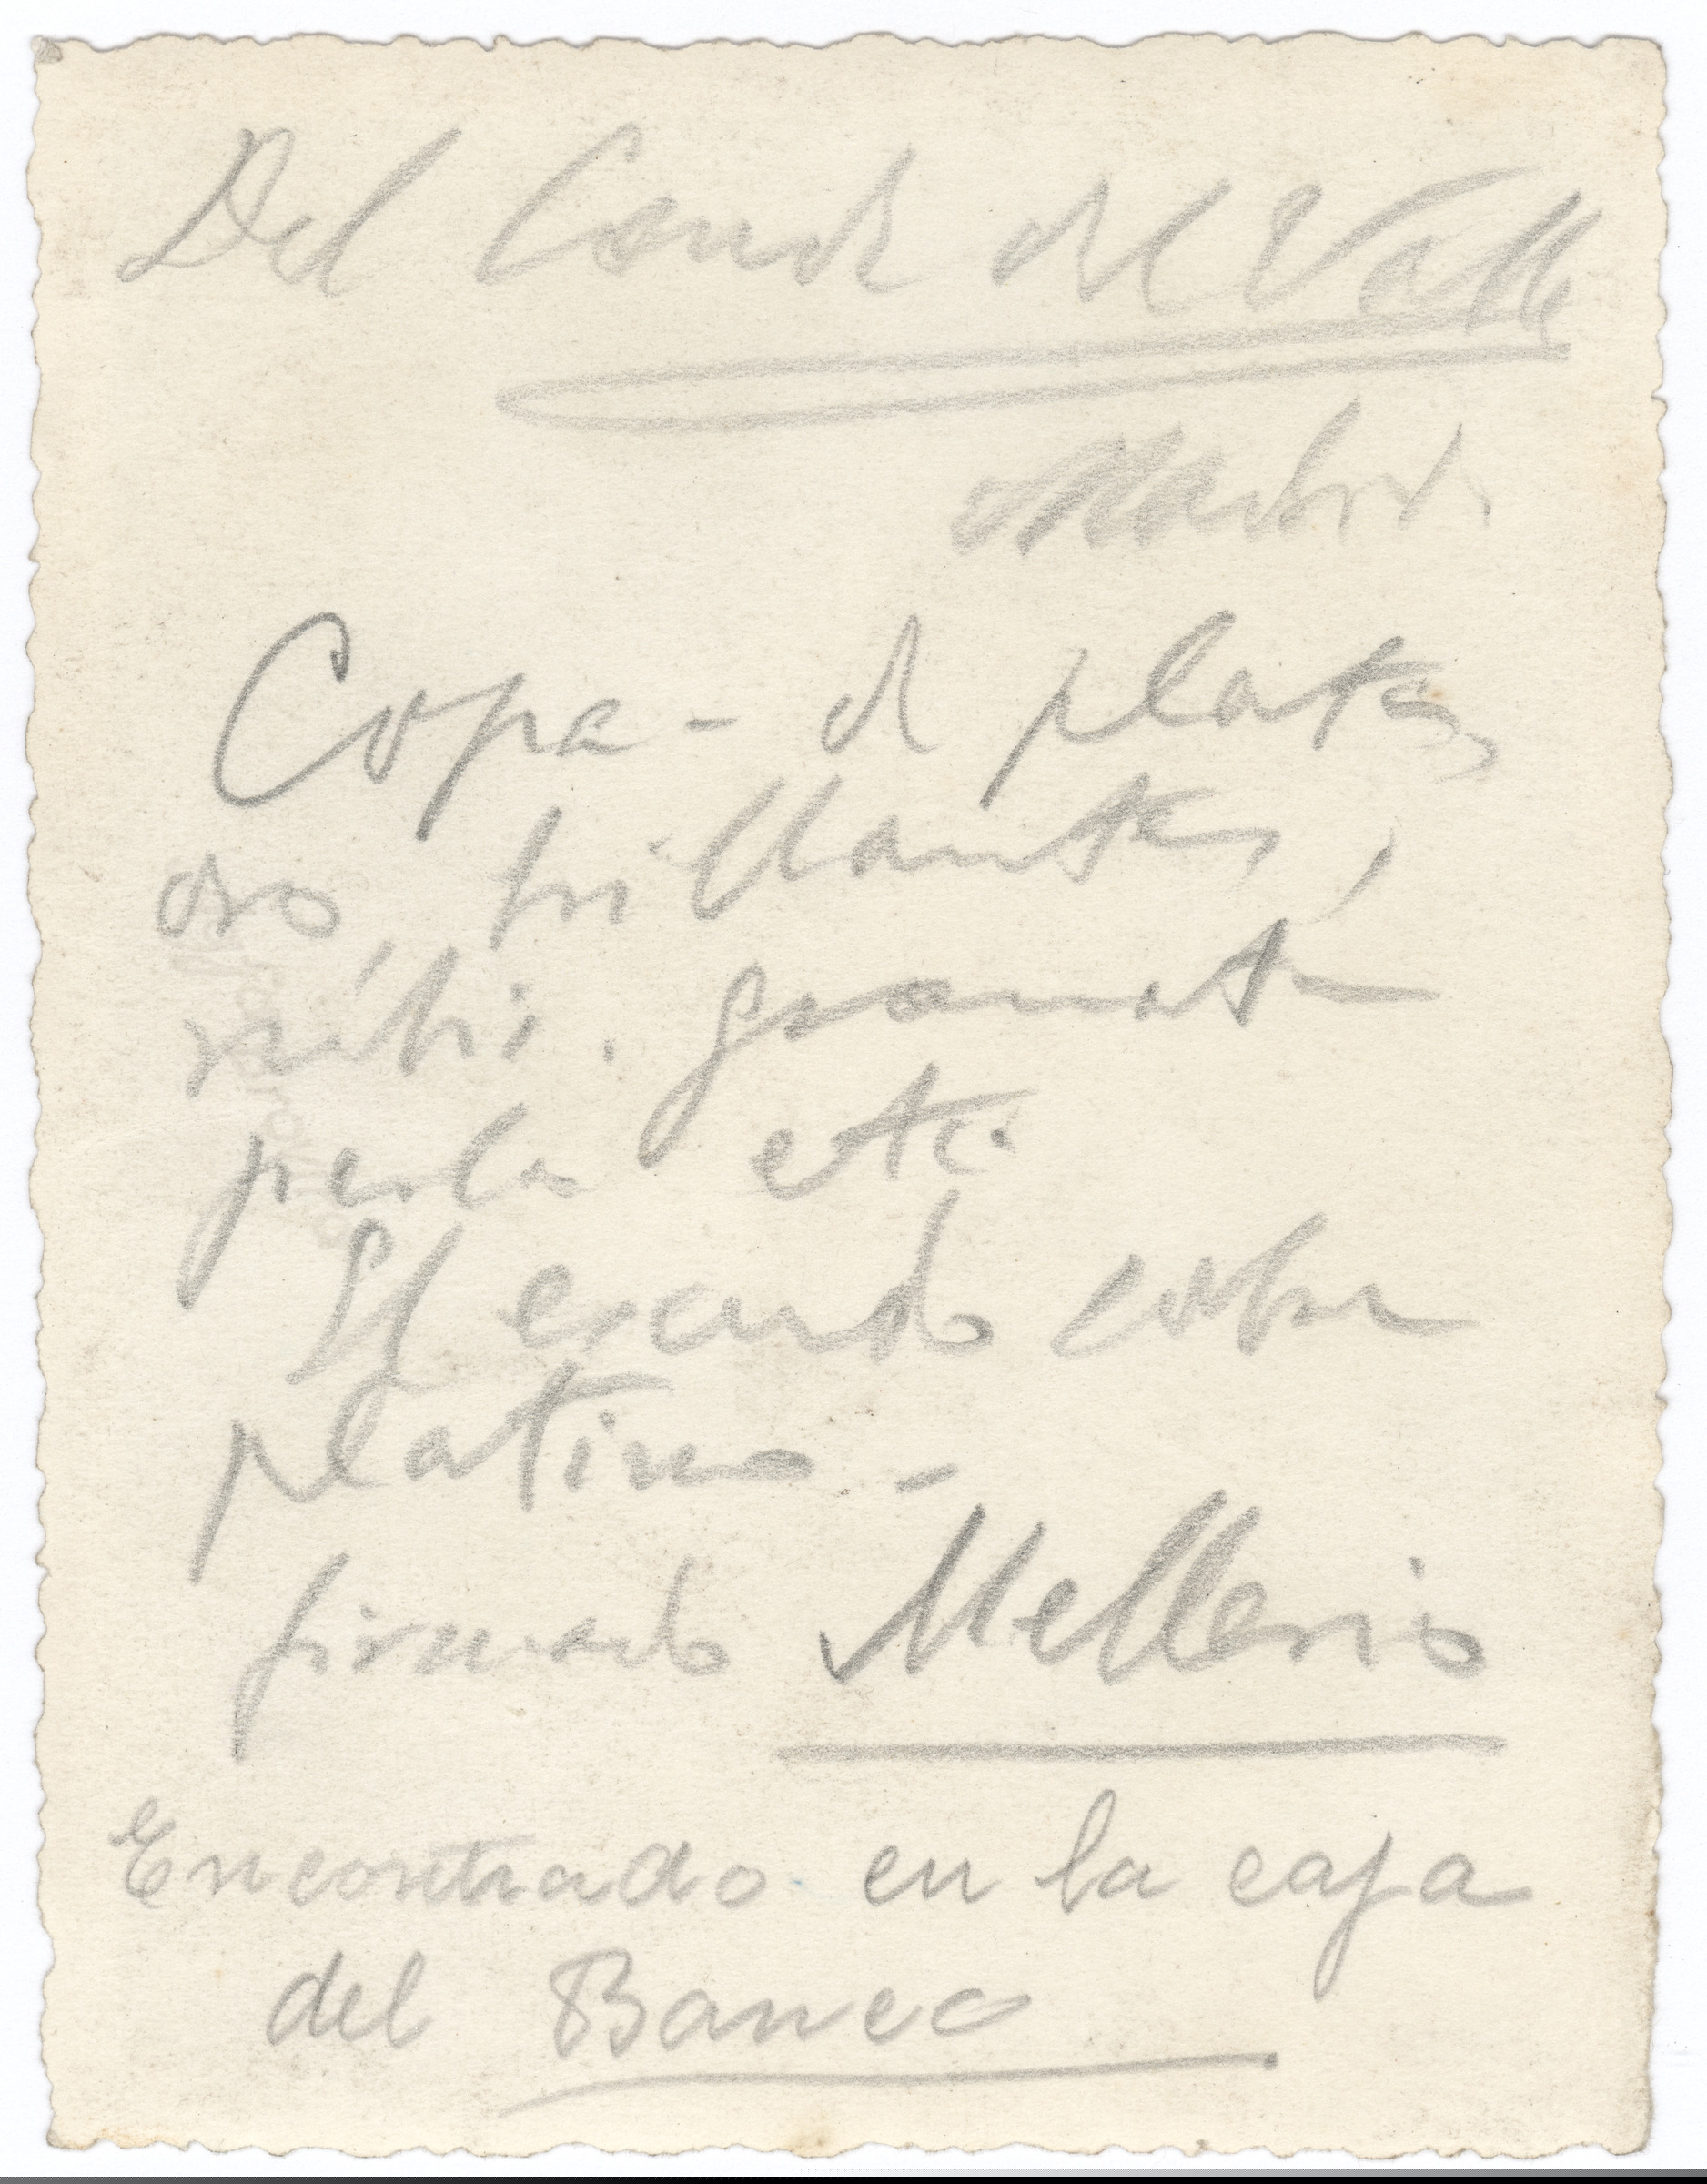 Del Conde del Valle
Madrid.
Copa - de plata,
oro, brillantes,
rúbi. granate
perla etc.
El escudo sobre
platino -
firmado Mellerio
Encontrado en la caja
del Banco